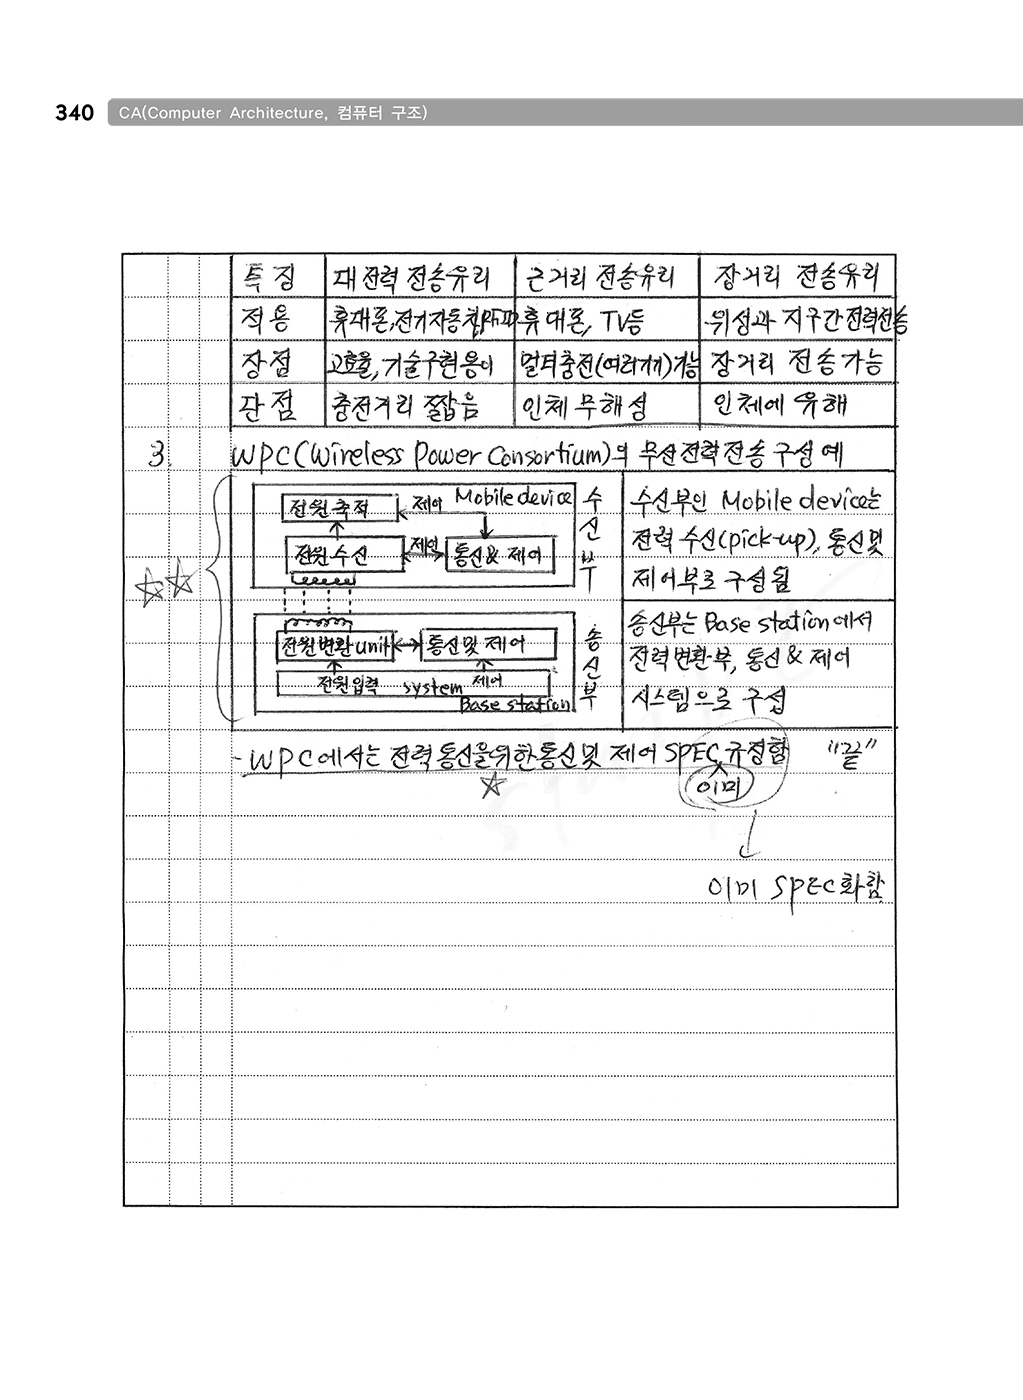 340 CA(Computer Architecture, 컴퓨터 구조)
특징 대전력 전송유리 근거리 전송유리 장거리 전송유리
적용 휴대폰, 전기자동차, 휴대폰, TV등 위성과 지구간 전력전송
장점 고효율, 기술구현용이 멀티충전(여러개)가능 장거리 전송가능
단점 충전거리 짧음 인체 무해성 인체에 유해
3. WPC(Wireless Power Consortium)의 무선전력전송 구성 예
Mobile device
전원축적 제어
전원수신 제어 통신 & 제어
수신부
수신부인 Mobile device는
전력 수신(pick-up), 통신및
제어부로 구성됨
전원변환unit 통신및 제어
전원입력 system 제어
Base station
송신부
송신부는 Base station에서
전력변환부, 통신 & 제어
시스템으로 구성
- WPC에서는 전력통신을위한통신및 제어 SPEC 규정함 "끝"
이미
이미 SPEC화함